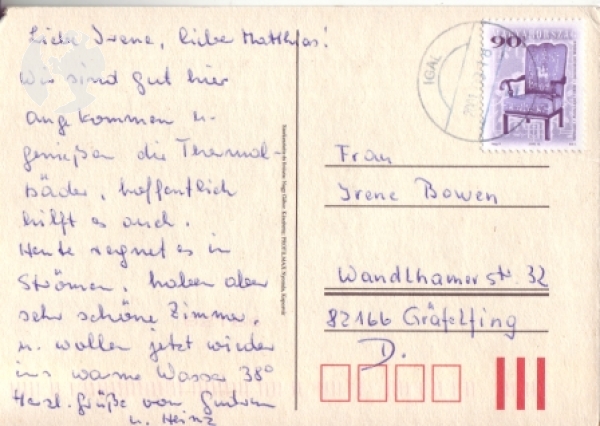 Liebe Irene, lieber Matthias!
Wir sind gut hier
angekommen u.
genießen die Thermal-
bäder, hoffentlich
hilft es auch.
Heute regnet es in
Strömen, haben aber
sehr schöne Zimmer,
u. wollen jetzt wieder
ins warme Wasser 38°
Herzl. Grüße von Gudrun
u. Heinz
90
IGAL
Frau
Irene Bowen
Wandlhamerstr. 32
82166 Gräfelfing
D.